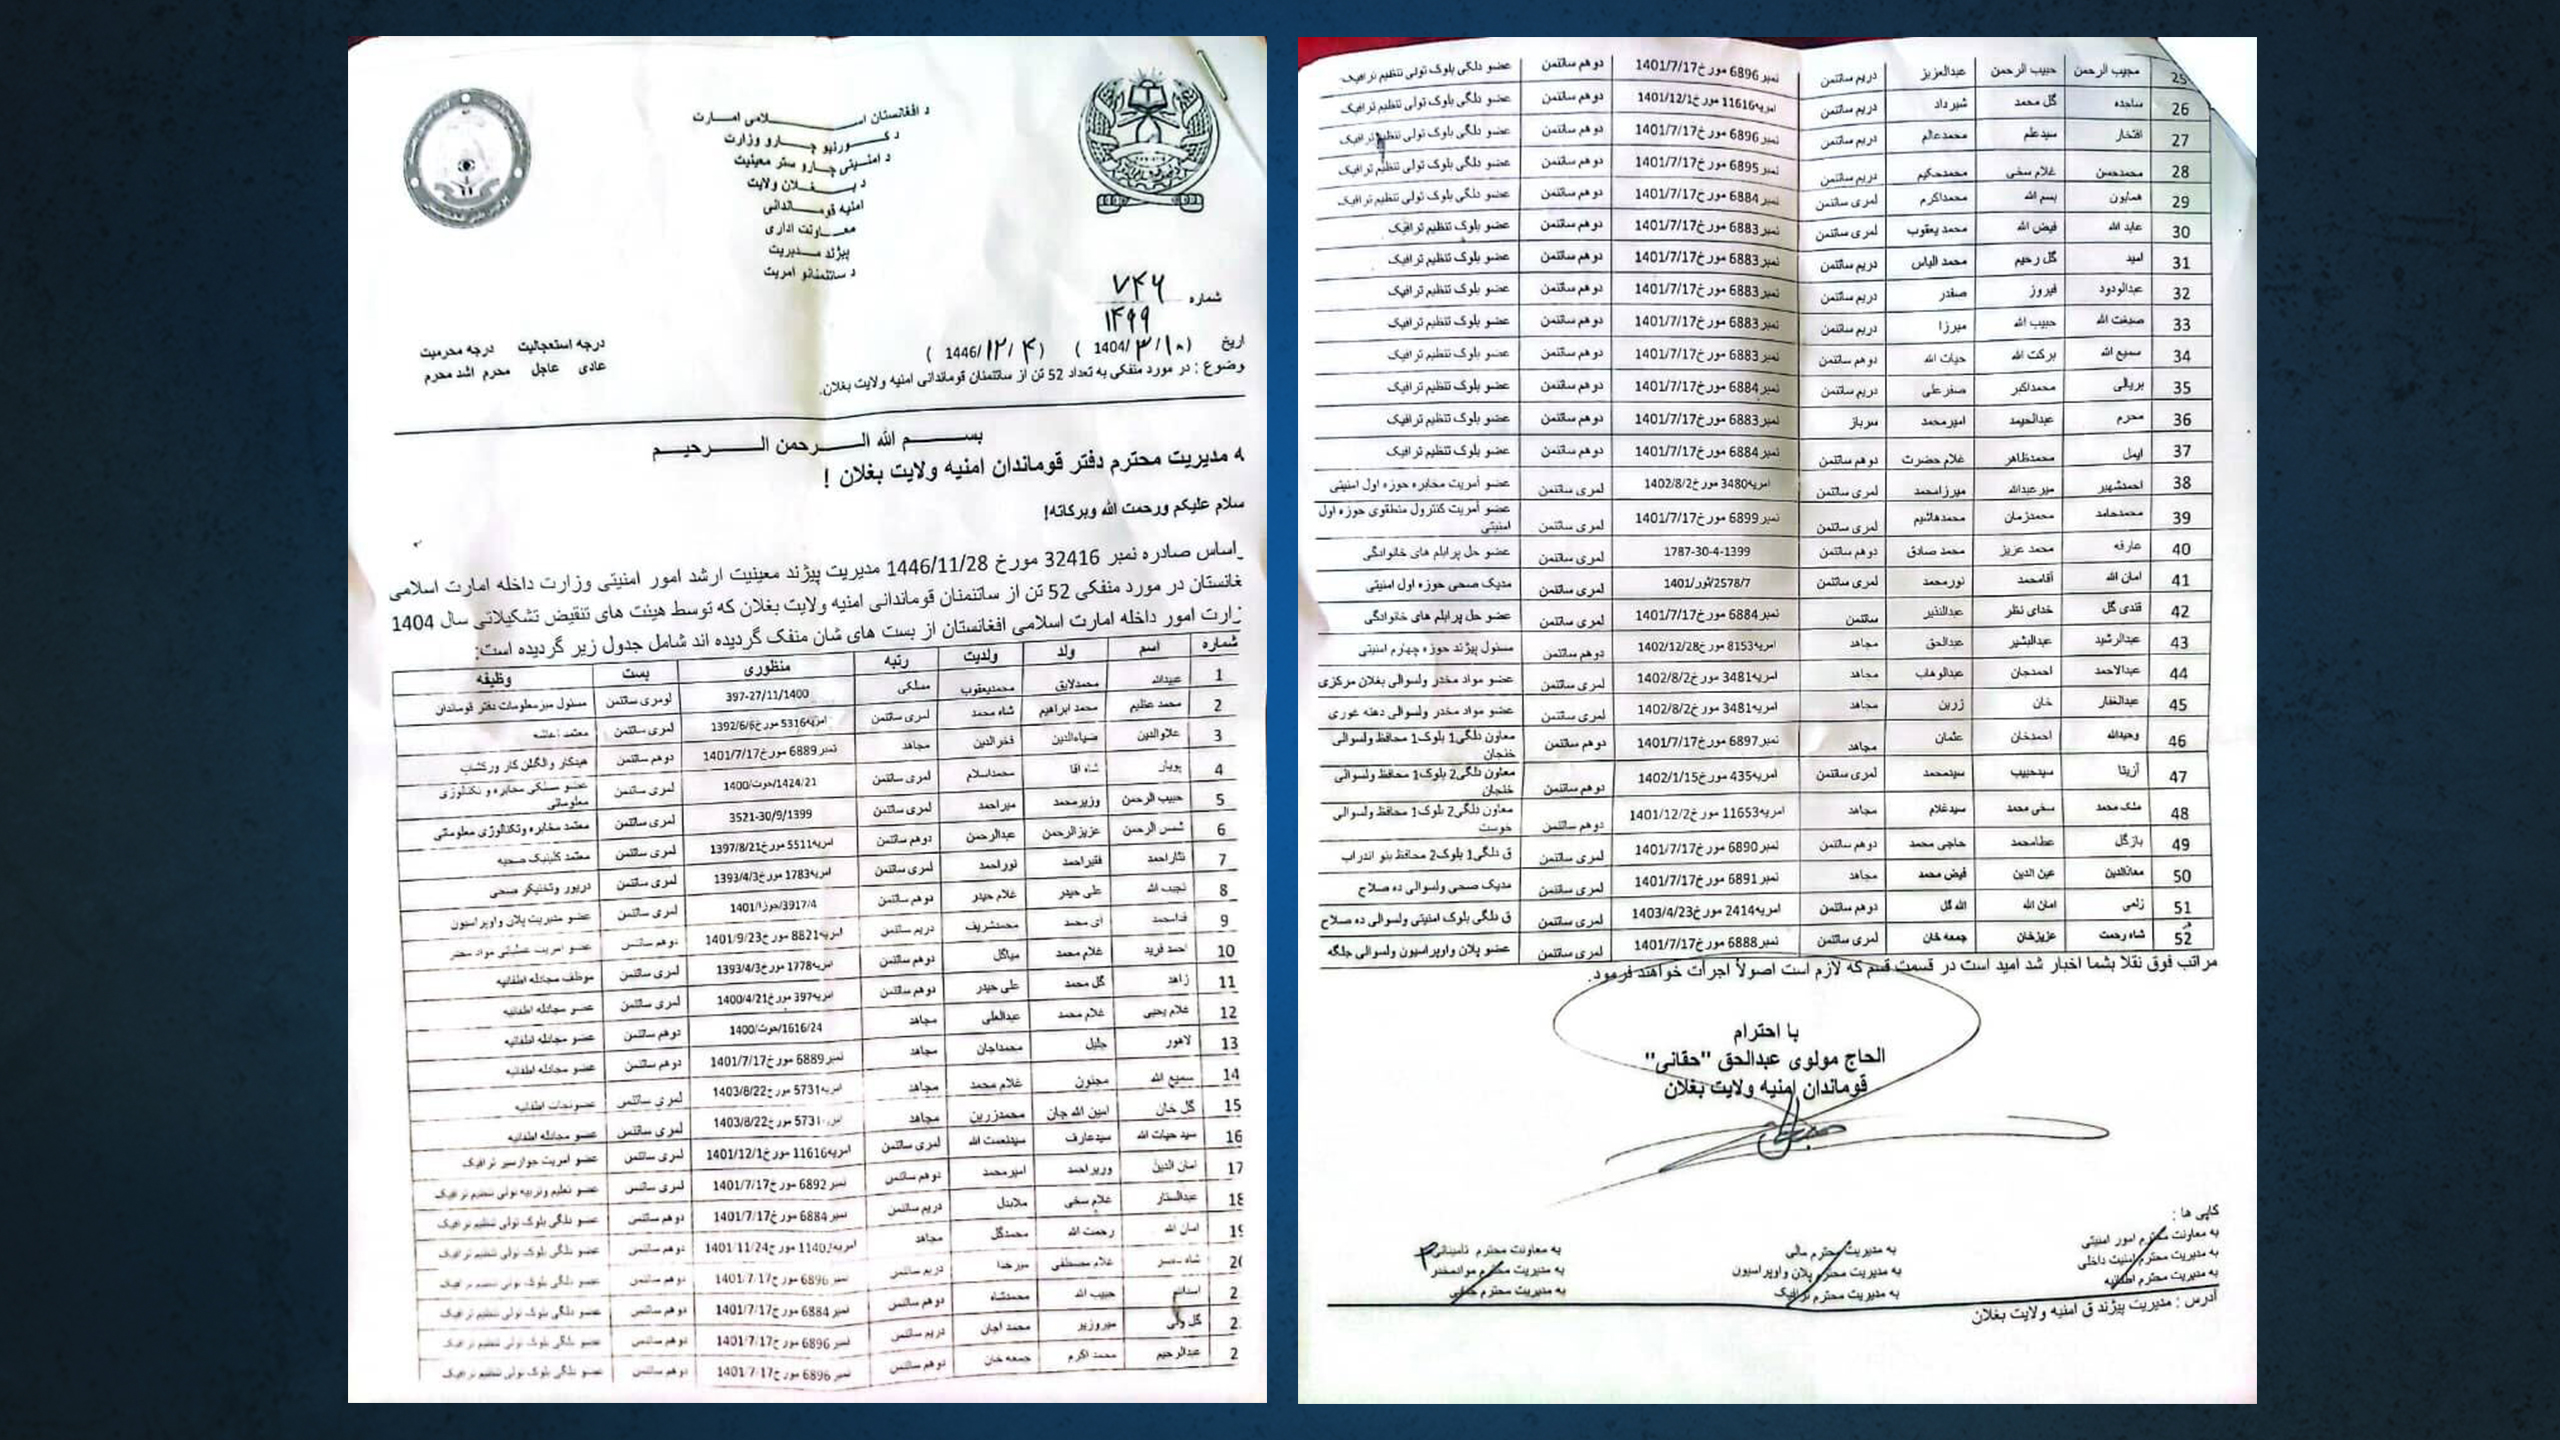 د افغانستان اسلامی امارت
د کورنیو چارو وزارت
د امنیتی چارو ستر معینیت
د بغلان ولایت
امنیه قوماندانی
معاونت اداری
پیژند مدیریت
د ساتنمنانو امریت
شماره ۷۴۶
۱۴۹۹
اریخ ( 1404/۳/۱۰ ) ( 1446/۱۲/۴ )
درجه استعجالیت درجه محرمیت
عادی عاجل محرم اشد محرم
وضوع : در مورد منفکی به تعداد 52 تن از ساتنمنان قوماندانی امنیه ولایت بغلان.
بسم الله الرحمن الرحیم
ه مدیریت محترم دفتر قوماندان امنیه ولایت بغلان !
سلام علیکم ورحمت الله وبرکاته!
راساس صادره نمبر 32416 مورخ 1446/11/28 مدیریت پیژند معینیت ارشد امور امنیتی وزارت داخله امارت اسلامی
غانستان در مورد منفکی 52 تن از ساتنمنان قوماندانی امنیه ولایت بغلان که توسط هیئت های تنقیض تشکیلاتی سال 1404
زارت امور داخله امارت اسلامی افغانستان از بست های شان منفک گردیده اند شامل جدول زیر گردیده است:
شماره اسم ولد ولدیت رتبه منظوری بست وظیفه
1 عبیدالله محمدلایق محمدیعقوب مسلکی 397-27/11/1400 لومری ساتنمن مسئول میزمعلومات دفتر قوماندان
2 محمد عظیم محمد ابراهیم شاه محمد لمری ساتنمن امریه5316 مورخ1392/6/6 لمری ساتنمن معتمد اعاشه
3 علاوالدین ضیاءالدین فخرالدین مجاهد نمبر6889 مورخ1401/7/17 دوهم ساتنمن هیدکار والگلن کار ورکشاپ
4 پویار شاه اقا محمداسلام لمری ساتنمن 1424/21/حوت/1400 لمری ساتنمن عضو مسلکی مخابره و تکنالوژی معلوماتی
5 حبیب الرحمن وزیرمحمد میراحمد لمری ساتنمن 3521-30/9/1399 لمری ساتنمن معتمد مخابره وتکنالوژی معلوماتی
6 شمس الرحمن عزیزالرحمن عبدالرحمن دوهم ساتنمن امریه5511 مورخ1397/8/21 لمری ساتنمن معتمد کلینیک صحیه
7 نثاراحمد فقیراحمد نوراحمد لمری ساتنمن امریه1783 مورخ1393/4/3 لمری ساتنمن دریور وتخنیکر صحی
8 نجیب الله علی حیدر غلام حیدر دوهم ساتنمن 3917/4/جوزا/1401 لمری ساتنمن عضو مدیریت پلان واوپراسیون
9 فدامحمد آی محمد محمدشریف دریم ساتنمن امریه8821 مورخ1401/9/23 دوهم ساتنمن عضو امریت عملیاتی مواد مخدر
10 احمد فرید غلام محمد میاگل دوهم ساتنمن امریه1778 مورخ1393/4/3 لمری ساتنمن موظف مجادله اطفائیه
11 زاهد گل محمد علی حیدر دوهم ساتنمن امریه397 مورخ1400/4/21 لمری ساتنمن عضو مجادله اطفائیه
12 غلام یحیی غلام محمد عبدالعلی مجاهد 1616/24/حوت/1400 دوهم ساتنمن عضو مجادله اطفائیه
13 لاهور جلیل محمداجان مجاهد نمبر6889 مورخ1401/7/17 دوهم ساتنمن عضو مجادله اطفائیه
14 سمیع الله مجنون غلام محمد مجاهد امریه5731 مورخ1403/8/22 لمری ساتنمن عضونجات اطفائیه
15 گل خان امین الله جان محمدزرین مجاهد 5731 مورخ1403/8/22 لمری ساتنمن عضو مجادله اطفائیه
16 سید حیات الله سیدعارف سیدنعمت الله لمری ساتنمن امریه11616 مورخ1401/12/1 لمری ساتنمن عضو امریت جوازسیر ترافیک
17 امان الدین وزیراحمد امیرمحمد دوهم ساتنمن نمبر6892 مورخ1401/7/17 لمری ساتنمن عضو تعلیم وتربیه تولی تنظیم ترافیک
18 عبدالستار غلام سخی ملابدل دریم ساتنمن نمبر6884 مورخ1401/7/17 دوهم ساتنمن عضو دلگی بلوک تولی تنظیم ترافیک
19 امان الله رحمت الله محمدگل مجاهد 1401/11/24 دوهم ساتنمن عضو دلگی بلوک تولی تنظیم ترافیک
20 شاه غلام مصطفی میرخدا دریم ساتنمن نمبر6896 مورخ1401/7/17 دوهم ساتنمن عضو دلگی بلوک تولی تنظیم ترافیک
2 حبیب الله محمدشاه دوهم ساتنمن نمبر6884 مورخ1401/7/17 دوهم ساتنمن عضو دلگی بلوک تولی تنظیم ترافیک
2 گل ولی میروزیر محمد اجان دریم ساتنمن نمبر6896 مورخ1401/7/17 دوهم ساتنمن عضو دلگی بلوک تولی تنظیم ترافیک
2 عبدالرحیم محمد اکرم جمعه خان دوهم ساتنمن نمبر6896 مورخ1401/7/17 دوهم ساتنمن عضو دلگی بلوک تولی تنظیم ترافیک
25 مجیب الرحمن حبیب الرحمن عبدالعزیز دریم ساتنمن نمبر6896 مورخ1401/7/17 دوهم ساتنمن عضو دلگی بلوک تولی تنظیم ترافیک
26 ساجده گل محمد شیرداد دریم ساتنمن امریه11616 مورخ1401/12/1 دوهم ساتنمن عضو دلگی بلوک تولی تنظیم ترافیک
27 افتخار سیدعلم محمدعالم دریم ساتنمن نمبر6896 مورخ1401/7/17 دوهم ساتنمن عضو دلگی بلوک تولی تنظیم ترافیک
28 محمدحسن غلام سخی محمدحکیم دریم ساتنمن نمبر6895 مورخ1401/7/17 دوهم ساتنمن عضو دلگی بلوک تولی تنظیم ترافیک
29 همایون بسم الله محمداکرم لمری ساتنمن نمبر6884 مورخ1401/7/17 دوهم ساتنمن عضو دلگی بلوک تولی تنظیم ترافیک
30 عابد الله فیض الله محمد یعقوب لمری ساتنمن نمبر6883 مورخ1401/7/17 دوهم ساتنمن عضو بلوک تنظیم ترافیک
31 امید گل رحیم محمد الیاس دریم ساتنمن نمبر6883 مورخ1401/7/17 دوهم ساتنمن عضو بلوک تنظیم ترافیک
32 عبدالودود فیروز صفدر دریم ساتنمن نمبر6883 مورخ1401/7/17 دوهم ساتنمن عضو بلوک تنظیم ترافیک
33 صبغت الله حبیب الله میرزا دریم ساتنمن نمبر6883 مورخ1401/7/17 دوهم ساتنمن عضو بلوک تنظیم ترافیک
34 سمیع الله برکت الله حیات الله دوهم ساتنمن نمبر6883 مورخ1401/7/17 دوهم ساتنمن عضو بلوک تنظیم ترافیک
35 بریالی محمداکبر صفرعلی دریم ساتنمن نمبر6884 مورخ1401/7/17 دوهم ساتنمن عضو بلوک تنظیم ترافیک
36 محرم عبدالحمید امیرمحمد سرباز نمبر6883 مورخ1401/7/17 دوهم ساتنمن عضو بلوک تنظیم ترافیک
37 ایمل محمدظاهر غلام حضرت دوهم ساتنمن نمبر6884 مورخ1401/7/17 دوهم ساتنمن عضو بلوک تنظیم ترافیک
38 احمدشهیر میرعبدالله میرزامحمد لمری ساتنمن امریه3480 مورخ1402/8/2 لمری ساتنمن عضو آمریت مخابره حوزه اول امنیتی
39 محمدحامد محمدزمان محمدهاشم لمری ساتنمن نمبر6899 مورخ1401/7/17 لمری ساتنمن عضو آمریت کنترول منطقوی حوزه اول امنیتی
40 عارفه محمد عزیز محمد صادق دوهم ساتنمن 1787-30-4-1399 لمری ساتنمن عضو حل پرابلم های خانوادگی
41 امان الله آقامحمد نورمحمد لمری ساتنمن 2578/7/ثور/1401 لمری ساتنمن مدیک صحی حوزه اول امنیتی
42 قندی گل خدای نظر عبدالنذیر ساتنمن نمبر6884 مورخ1401/7/17 لمری ساتنمن عضو حل پرابلم های خانوادگی
43 عبدالرشید عبدالبشیر عبدالحق مجاهد امریه8153 مورخ1402/12/28 دوهم ساتنمن مسئول پیژند حوزه چهارم امنیتی
44 عبدالاحمد احمدجان عبدالوهاب مجاهد امریه3481 مورخ1402/8/2 لمری ساتنمن عضو مواد مخدر ولسوالی بغلان مرکزی
45 عبدالغفار خان زرین مجاهد امریه3481 مورخ1402/8/2 لمری ساتنمن عضو مواد مخدر ولسوالی دهنه غوری
46 وحیدالله احمدخان عثمان مجاهد نمبر6897 مورخ1401/7/17 دوهم ساتنمن معاون دلگی1 بلوک1 محافظ ولسوالی خنجان
47 آزیتا سیدحبیب سیدمحمد لمری ساتنمن امریه435 مورخ1402/1/15 دوهم ساتنمن معاون دلگی2 بلوک1 محافظ ولسوالی خنجان
48 ملک محمد سخی محمد سیدغلام مجاهد امریه11653 مورخ1401/12/2 دوهم ساتنمن معاون دلگی2 بلوک1 محافظ ولسوالی خوست
49 بازگل عطامحمد حاجی محمد دوهم ساتنمن نمبر6890 مورخ1401/7/17 لمری ساتنمن ق دلگی1 بلوک2 محافظ بنو اندراب
50 معاذالدین عین الدین فیض محمد مجاهد نمبر6891 مورخ1401/7/17 لمری ساتنمن مدیک صحی ولسوالی ده صلاح
51 زلمی امان الله الله گل دوهم ساتنمن امریه2414 مورخ1403/4/23 لمری ساتنمن ق دلگی بلوک امنیتی ولسوالی ده صلاح
52 شاه رحمت عزیزخان جمعه خان لمری ساتنمن نمبر6888 مورخ1401/7/17 لمری ساتنمن عضو پلان واوپراسیون ولسوالی جلگه
مراتب فوق نقلاً بشما اخبار شد امید است در قسمت قسم که لازم است اصولاً اجرات خواهند فرمود.
با احترام
الحاج مولوی عبدالحق "حقانی"
قوماندان امنیه ولایت بغلان
کاپی ها :
به معاونت محترم امور امنیتی به مدیریت محترم مالی به معاونت محترم تامیناتی
به مدیریت محترم امنیت داخلی به مدیریت محترم پلان واوپراسیون به مدیریت محترم موادمخدر
به مدیریت محترم اطفائیه به مدیریت محترم ترافیک به مدیریت محترم
آدرس : مدیریت پیژند ق امنیه ولایت بغلان